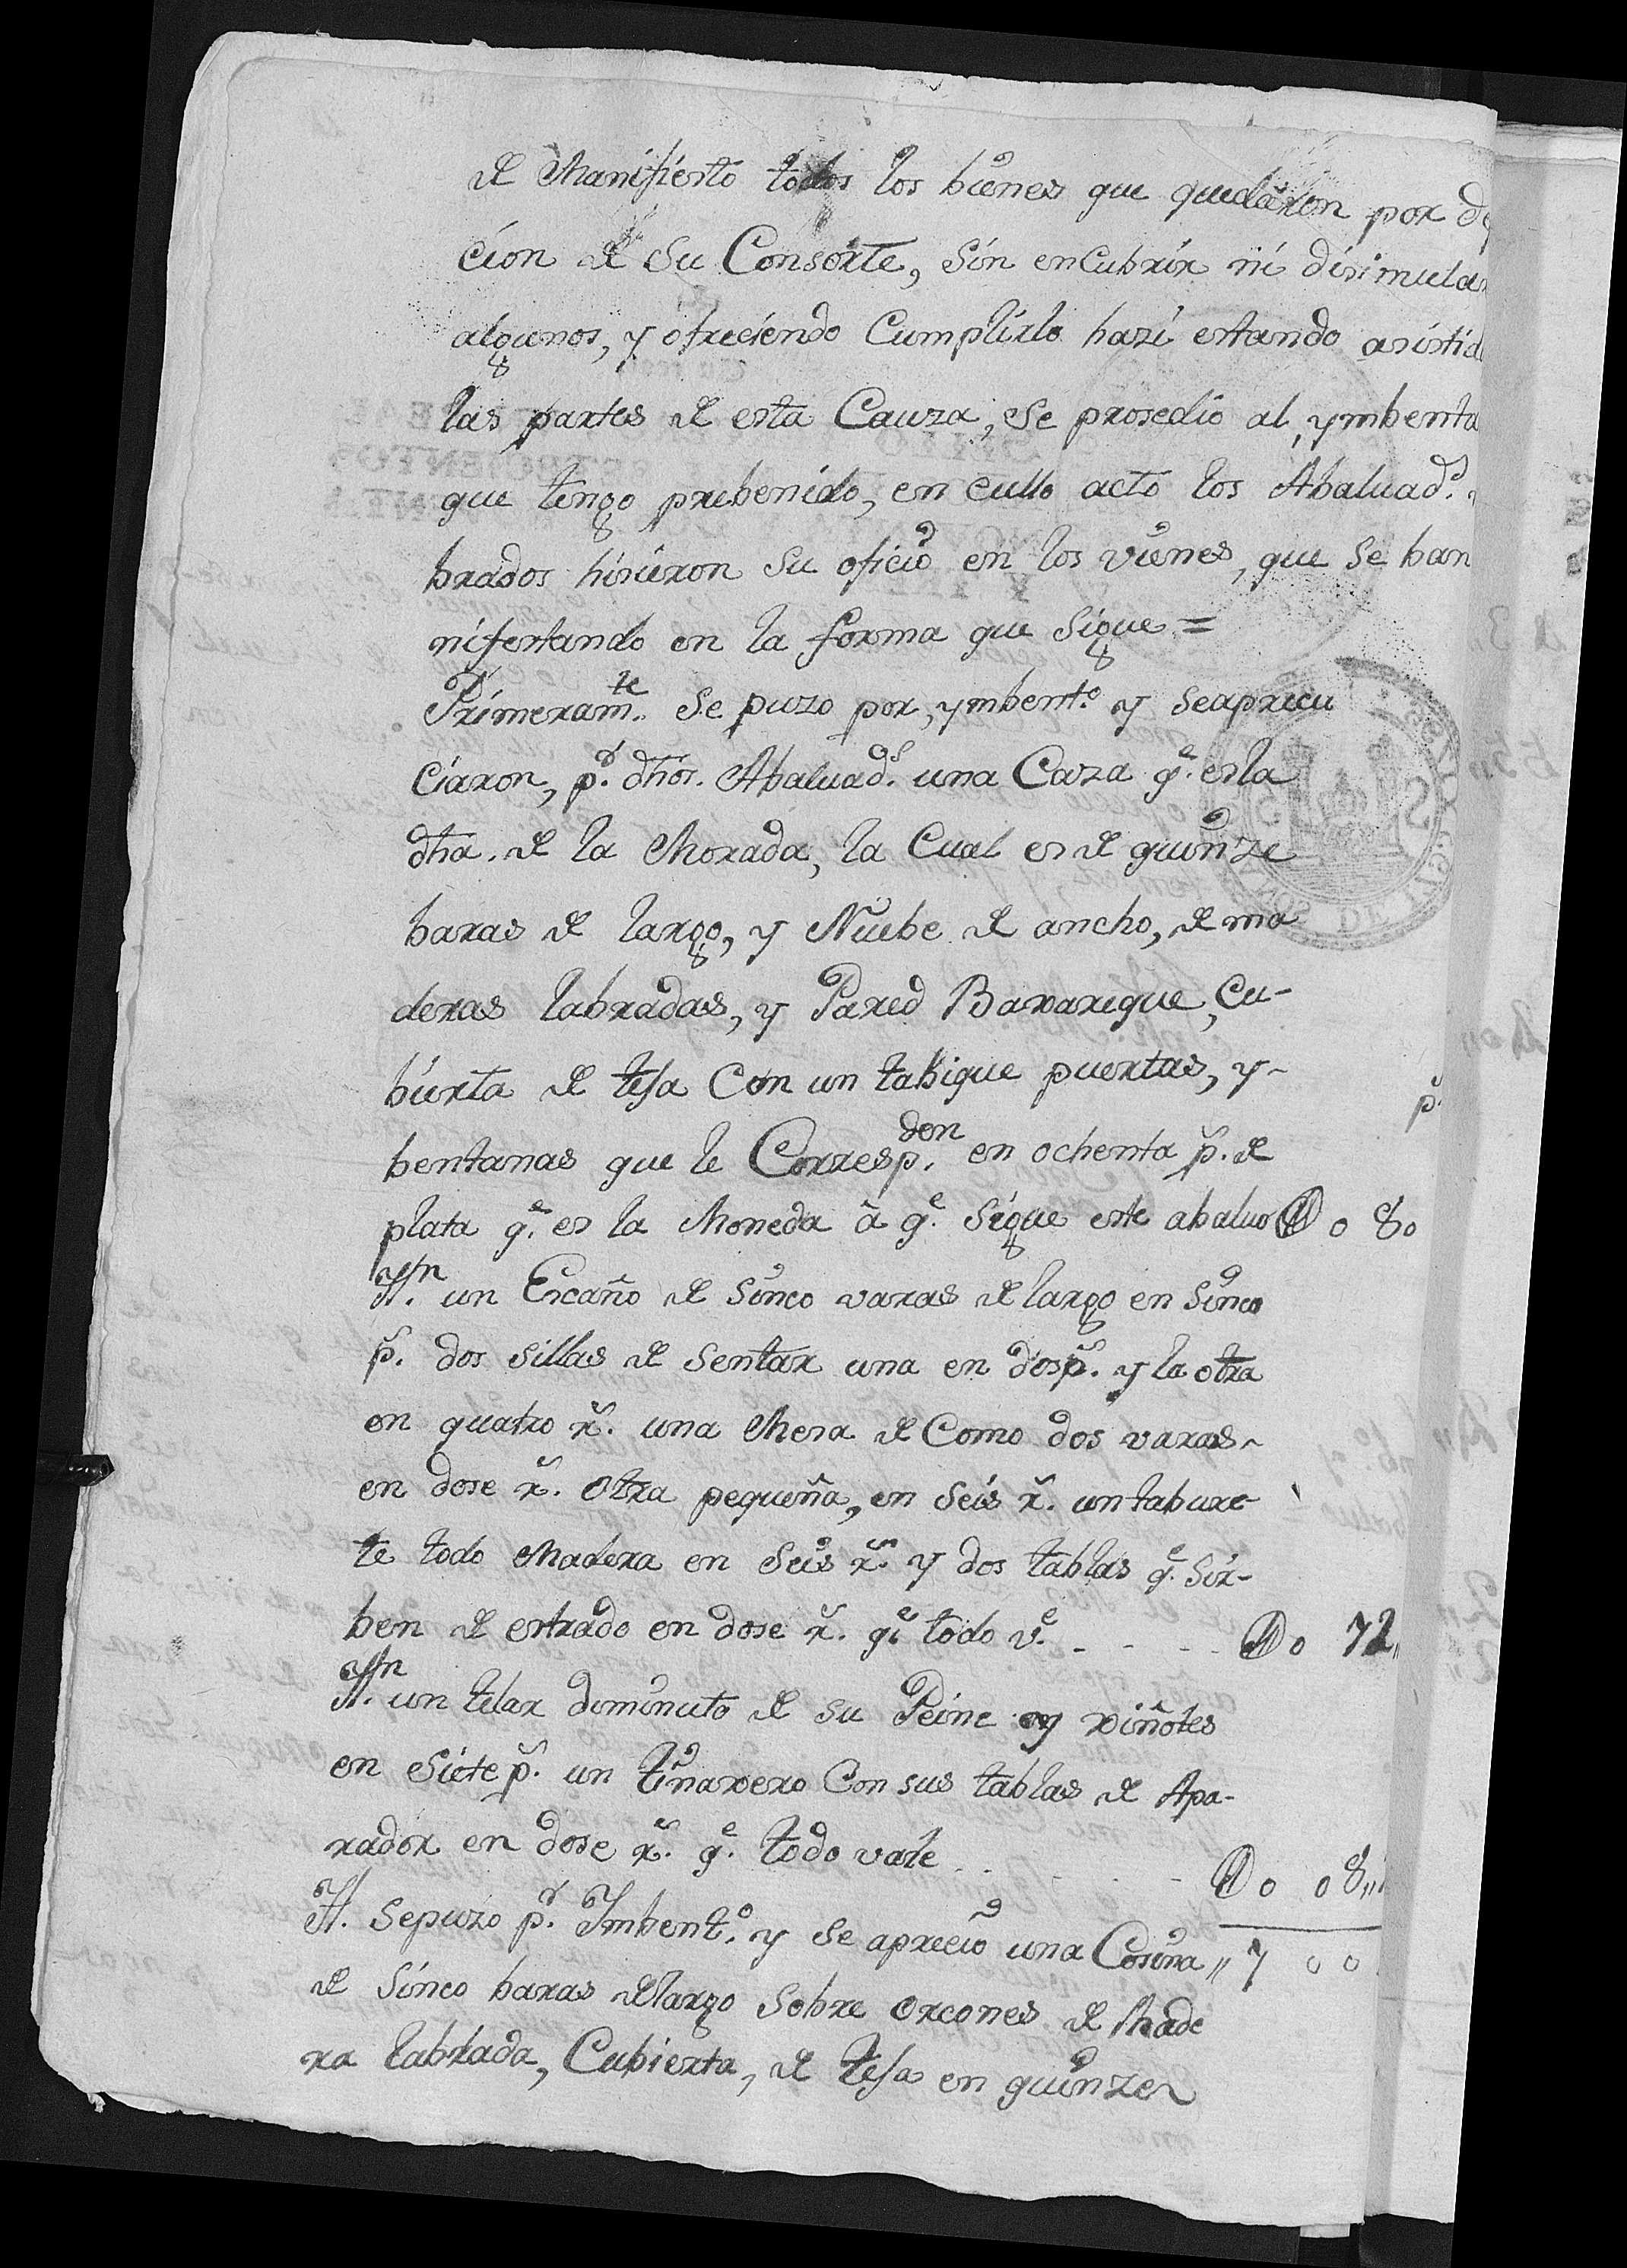 de Manifiesto todos los bienes que quedaron por de
cion de Su Consorte, Sin encubrir ni disimular
algunos, y ofreciendo Cumplirlo hazi estando asistid
las partes de esta Cauza, Se prosedio al, ymbenta
que tengo prebenido, en cullo acto los Abaluad.s
brados hisieron Su oficio en los vienes, que Se han
nifestando en la forma que Sigue =
Primeram.te Se puzo por, ymbent.o y Seapreci
ciaron, p.r dhos. Abaluad.s una Caza q.e es la
dha. de la Morada, la Cual es de quinze
baras de largo, y Nuebe de ancho, de ma
deras labradas, y Pared Baxareque, Cu-
bierta de tesa Con un tabique puertas, y-
bentanas que le Corresp.den en ochenta p.s de
plata q.e es la Moneda â q.e Sigue este abaluo D 0 80
Ytn. un Escaño de Sinco varas de largo en Sinco
p.s dos sillas de Sentar una en dos p.s y la otra
en quatro r.s una Mesa de Como dos varas-
en dose r.s Otra pequeña, en Seis r.s un tabure-
te todo Madera en Seis r.s y dos tablas q.e Sir-
ben de estrado en dose r.s q.e todo v.e - - - - D 0 12,,
Ytn. un telar diminuto de su Peine y viñotes
en Siete p.s un tinaxero Con sus tablas de Apa-
rador en dose r.s q.e todo vale - - - - D 0 08,,
Yt. Sepuzo p.r Imbent.o y Se aprecio una Cosina ,, 1 0 0
de Sinco baras delargo Sobre orcones de Made
ra labrada, Cubierta, de tesa en quinze